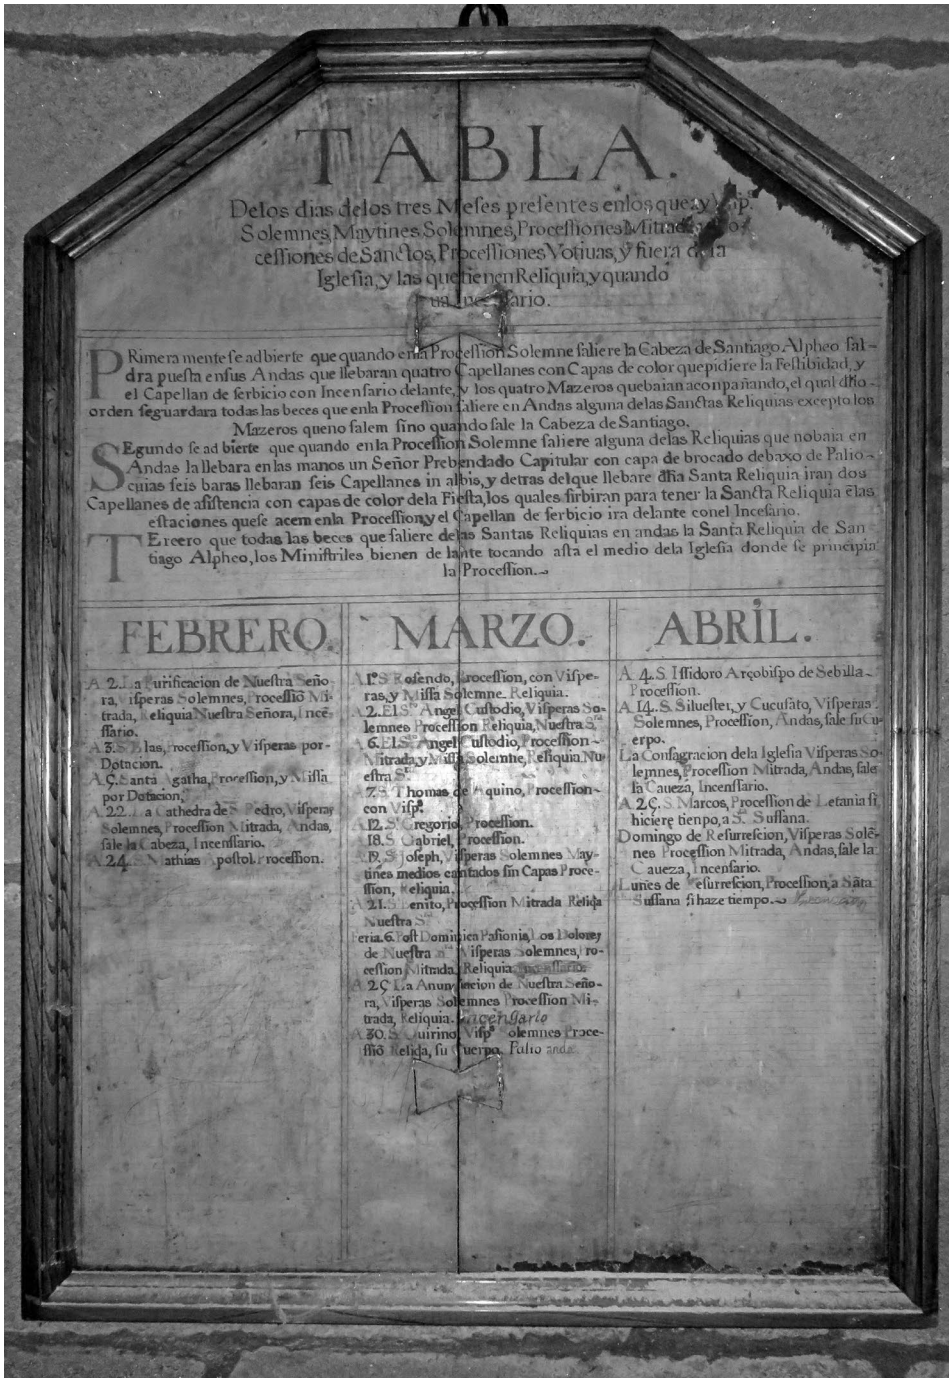 TABLA.
Delos dias delos tres Meses presentes enlos que ay Visp.ˢ
Solemnes, Maytines Solemnes, Processiones Mitradas
cessiones de Sanctos, Processiones Votiuas, y fuera dela
Iglesia, y las que tienen Reliquia, y quando
PRimera mente se adbierte que quando en la Procession Solemne saliere la Cabeza de Santiago Alpheo sal-
dra puesta en sus Andas que llebaran quatro Capellanes con Capas de color que pidiere la Festibidad, y
el Capellan de serbicio con Incensario delante, y los quatro Mazeros que baian aconpañando, el qual dħo
orden se guardara todas las beces que enla Procession saliere en Andas alguna delas Sanctas Reliquias excepto los
Mazeros que no salem sino quando sale la Cabeza de Santiago.
SEgundo se ad bierte que quando en la Procession Solemne saliere alguna delas Reliquias que no baia en
Andas la llebara en las manos un Señor Prebendado Capitular con capa de brocado debaxo de Palio-
cuias seis baras llebaran seis Capellanes in albis, y detras delque llebare dħa Santa Reliquia iran dos
Capellanes de asistencia con capas de color dela Fiesta, los quales sirbiran para tener la Sancta Reliquia ēlas
estaciones quese acem enla Procession, y el Capellan de serbicio ira delante conel Incesario.
TErcero que todas las beces que saliere delas Santas Reliquias en andas la Santa Reliquia de San
tiago Alpheo, los Ministriles bienen de lante tocando asta el medio dela Iglesia donde se principia
la Procession.
FEBRERO.
A 2. La Purificacion de Nuestra Seño-
ra, Visperas Solemnes, Processiō Mi-
trada, Reliquia Nuestra Señora, Incē
ssario.
A 3. S. Blas, Procession, y Visperas por-
Dotacion.
A 5. Santa Agatha, Procession, y Missa
por Dotacion,
A 22. La Cathedra de S. Pedro, Visperas
Solemnes, Procession Mitrada, Andas,
sale la Cabeza, Incenssario.
A 24. S. Mathias Apostol. Procession.
MARZO.
A 1º S. Rosendo, Procession, con Vispe-
ras, y Missa Solemne. Reliquia.
A 2. El S.ᵗᵒ Angel Custodio, Visperas So-
lemnes Procession Reliquia, Nuestra S.ʳᵃ
A 6. El S.ᵗᵒ Angel Custodio, Procession-
Mitrada, y Missa Solemne, Reliquia Nu-
estra S.ʳᵃ
A 7. S. Thomas de Aquino, Procession-
con Visp.ˢ
A 12. S. Gregorio, Procession.
A 18. S. Gabriel, Procession.
A 19. S. Joseph, Visperas Solemnes May-
tines medios cantados sin Capas Proce-
ssion, Reliquia.
A 21. S. Benito, Procession Mitrada Reliq̃a
Nuestra S.ʳᵃ
Feria. 6. Post Dominica Pasionis, Los Dolores
de Nuestra Visperas Solemnes, Pro-
cession Mitrada, Reliquia
A 25 La Anunciacion de Nuestra Seño-
ra, Visperas Solemnes Procession Mi-
trada, Reliquia. Incensario
A 30. S. Quirino, Visp.ˢ Solemnes Proce-
ssiō Reliq̃a, su Cuerpo. Palio andas
ABRIL.
A 4. S. Issidoro Arçobispo de Sebilla
Procession.
A 14. S. Siluester, y Cucufato, Visperas
Solemnes, Procession, Andas, sale su Cu-
erpo.
La Consagracion dela Iglesia Visperas So-
lemnes, Procession Mitrada, Andas, sale
la Caueza, Incenssario.
A 25. S. Marcos, Procession de Letania si
hiciere tienpo, a S.ᵗᵃ Sussana.
Domingo de Resurrescion, Visperas Solē-
nes Procession Mitrada, Andas, sale la
Caueza, Incensario.
Lunes de Resurrescion, Procession, a Sāta
Sussana si haze tiempo.